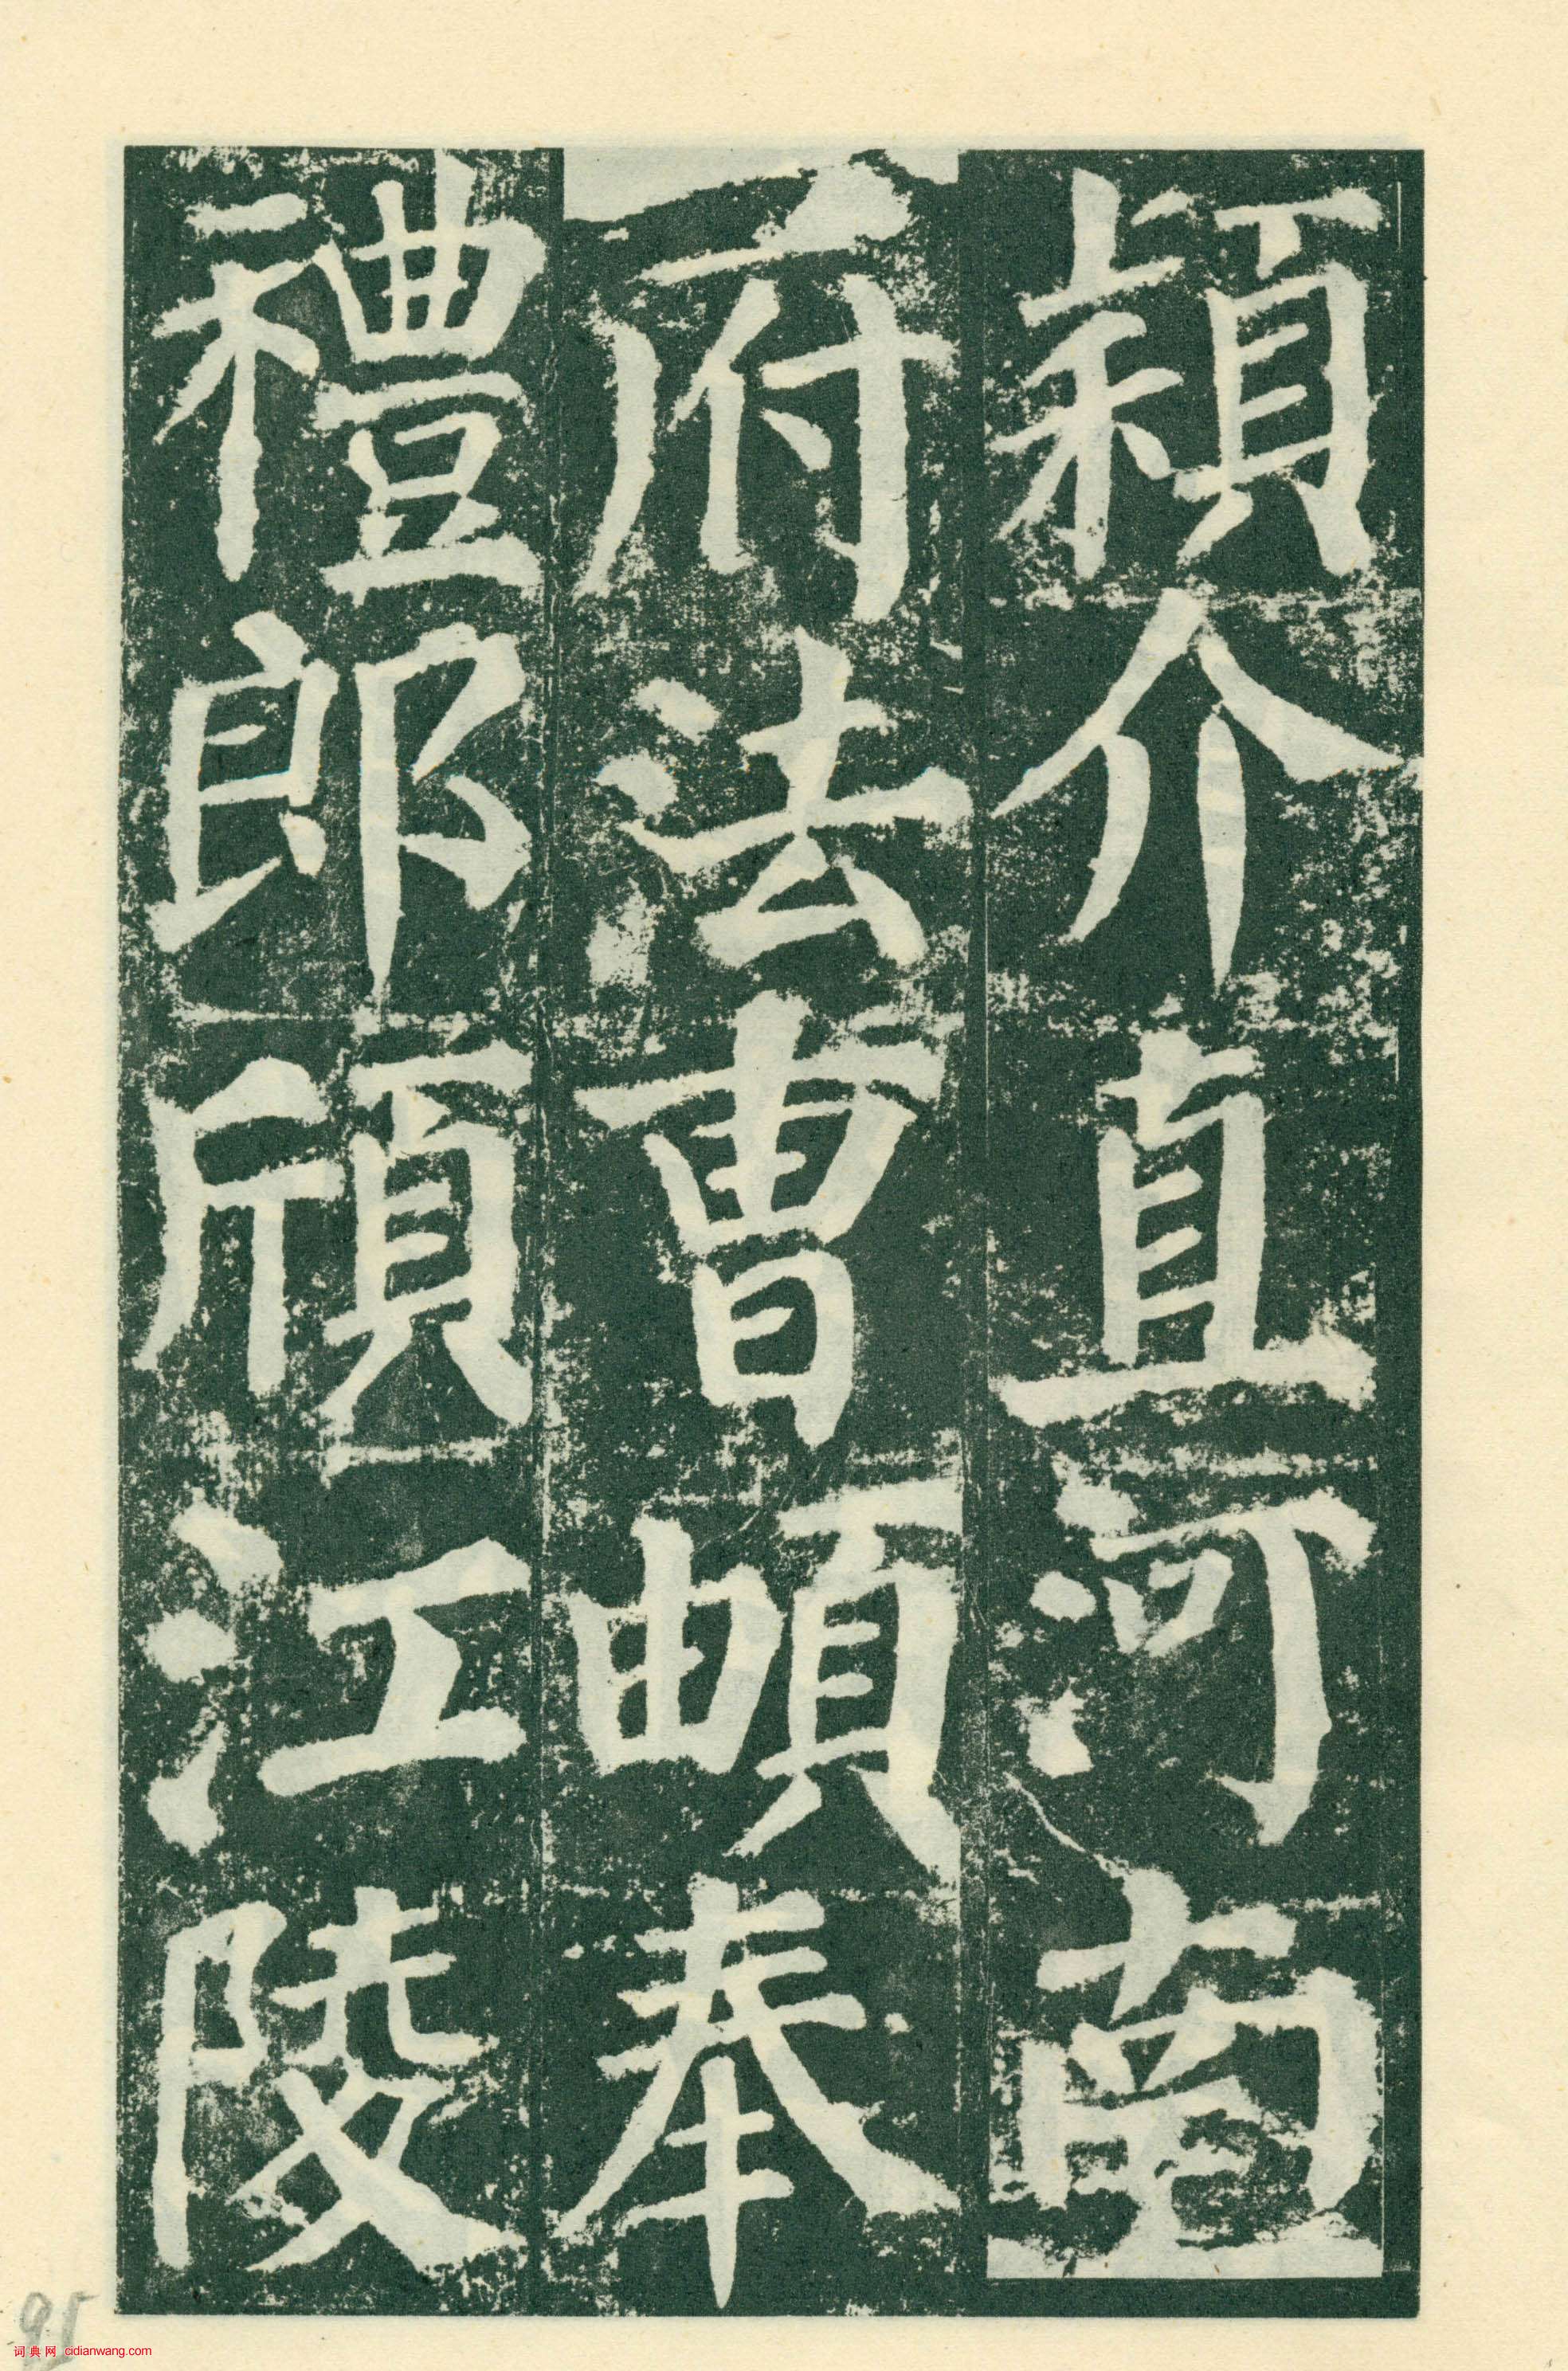 穎介直河南
府法曹頔奉
禮郎頎江陵
95
词典网 cidianwang.com